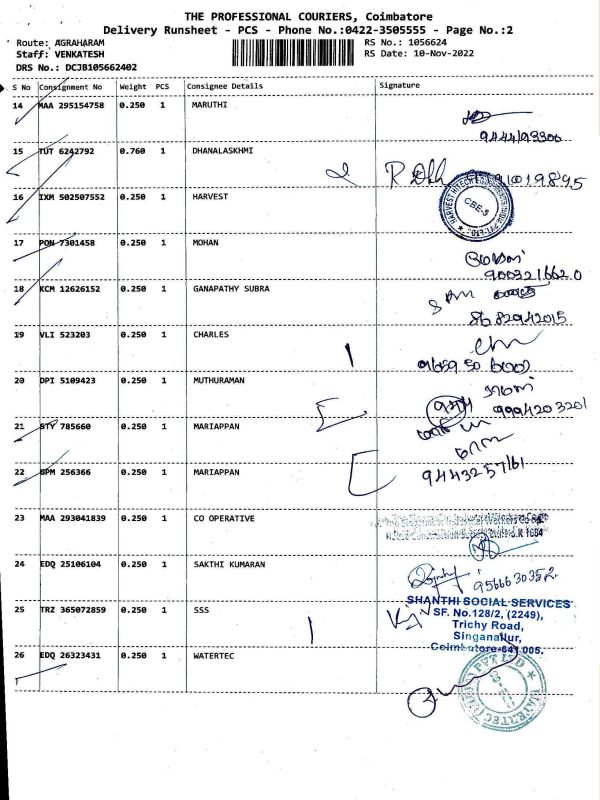 THE PROFESSIONAL COURIERS, Coimbatore
Delivery Runsheet - PCS - Phone No.:0422-3505555 - Page No.:2
Route: AGRAHARAM
Staff: VENKATESH
DRS No.: DCJB105662402
RS No.: 1056624
RS Date: 10-Nov-2022
S No Consignment No Weight PCS Consignee Details Signature
14 MAA 295154758 0.250 1 MARUTHI
15 TUT 6242792 0.760 1 DHANALASKHMI
16 IXM 502507552 0.250 1 HARVEST
CBE-5
17 PON 7301458 0.250 1 MOHAN
9003216620
18 KCM 12626152 0.250 1 GANAPATHY SUBRA
8682942015
19 VLI 523203 0.250 1 CHARLES
20 DPI 5109423 0.250 1 MUTHURAMAN
9994203201
21 STY 785660 0.250 1 MARIAPPAN
22 GPM 256366 0.250 1 MARIAPPAN
9443257161
23 MAA 293041839 0.250 1 CO OPERATIVE
24 EDQ 25106104 0.250 1 SAKTHI KUMARAN
9566630352
25 TRZ 365072859 0.250 1 SSS
SHANTHI SOCIAL SERVICES
SF. No.128/2, (2249),
Trichy Road,
Singanallur,
Coimbatore-641 005.
26 EDQ 26323431 0.250 1 WATERTEC